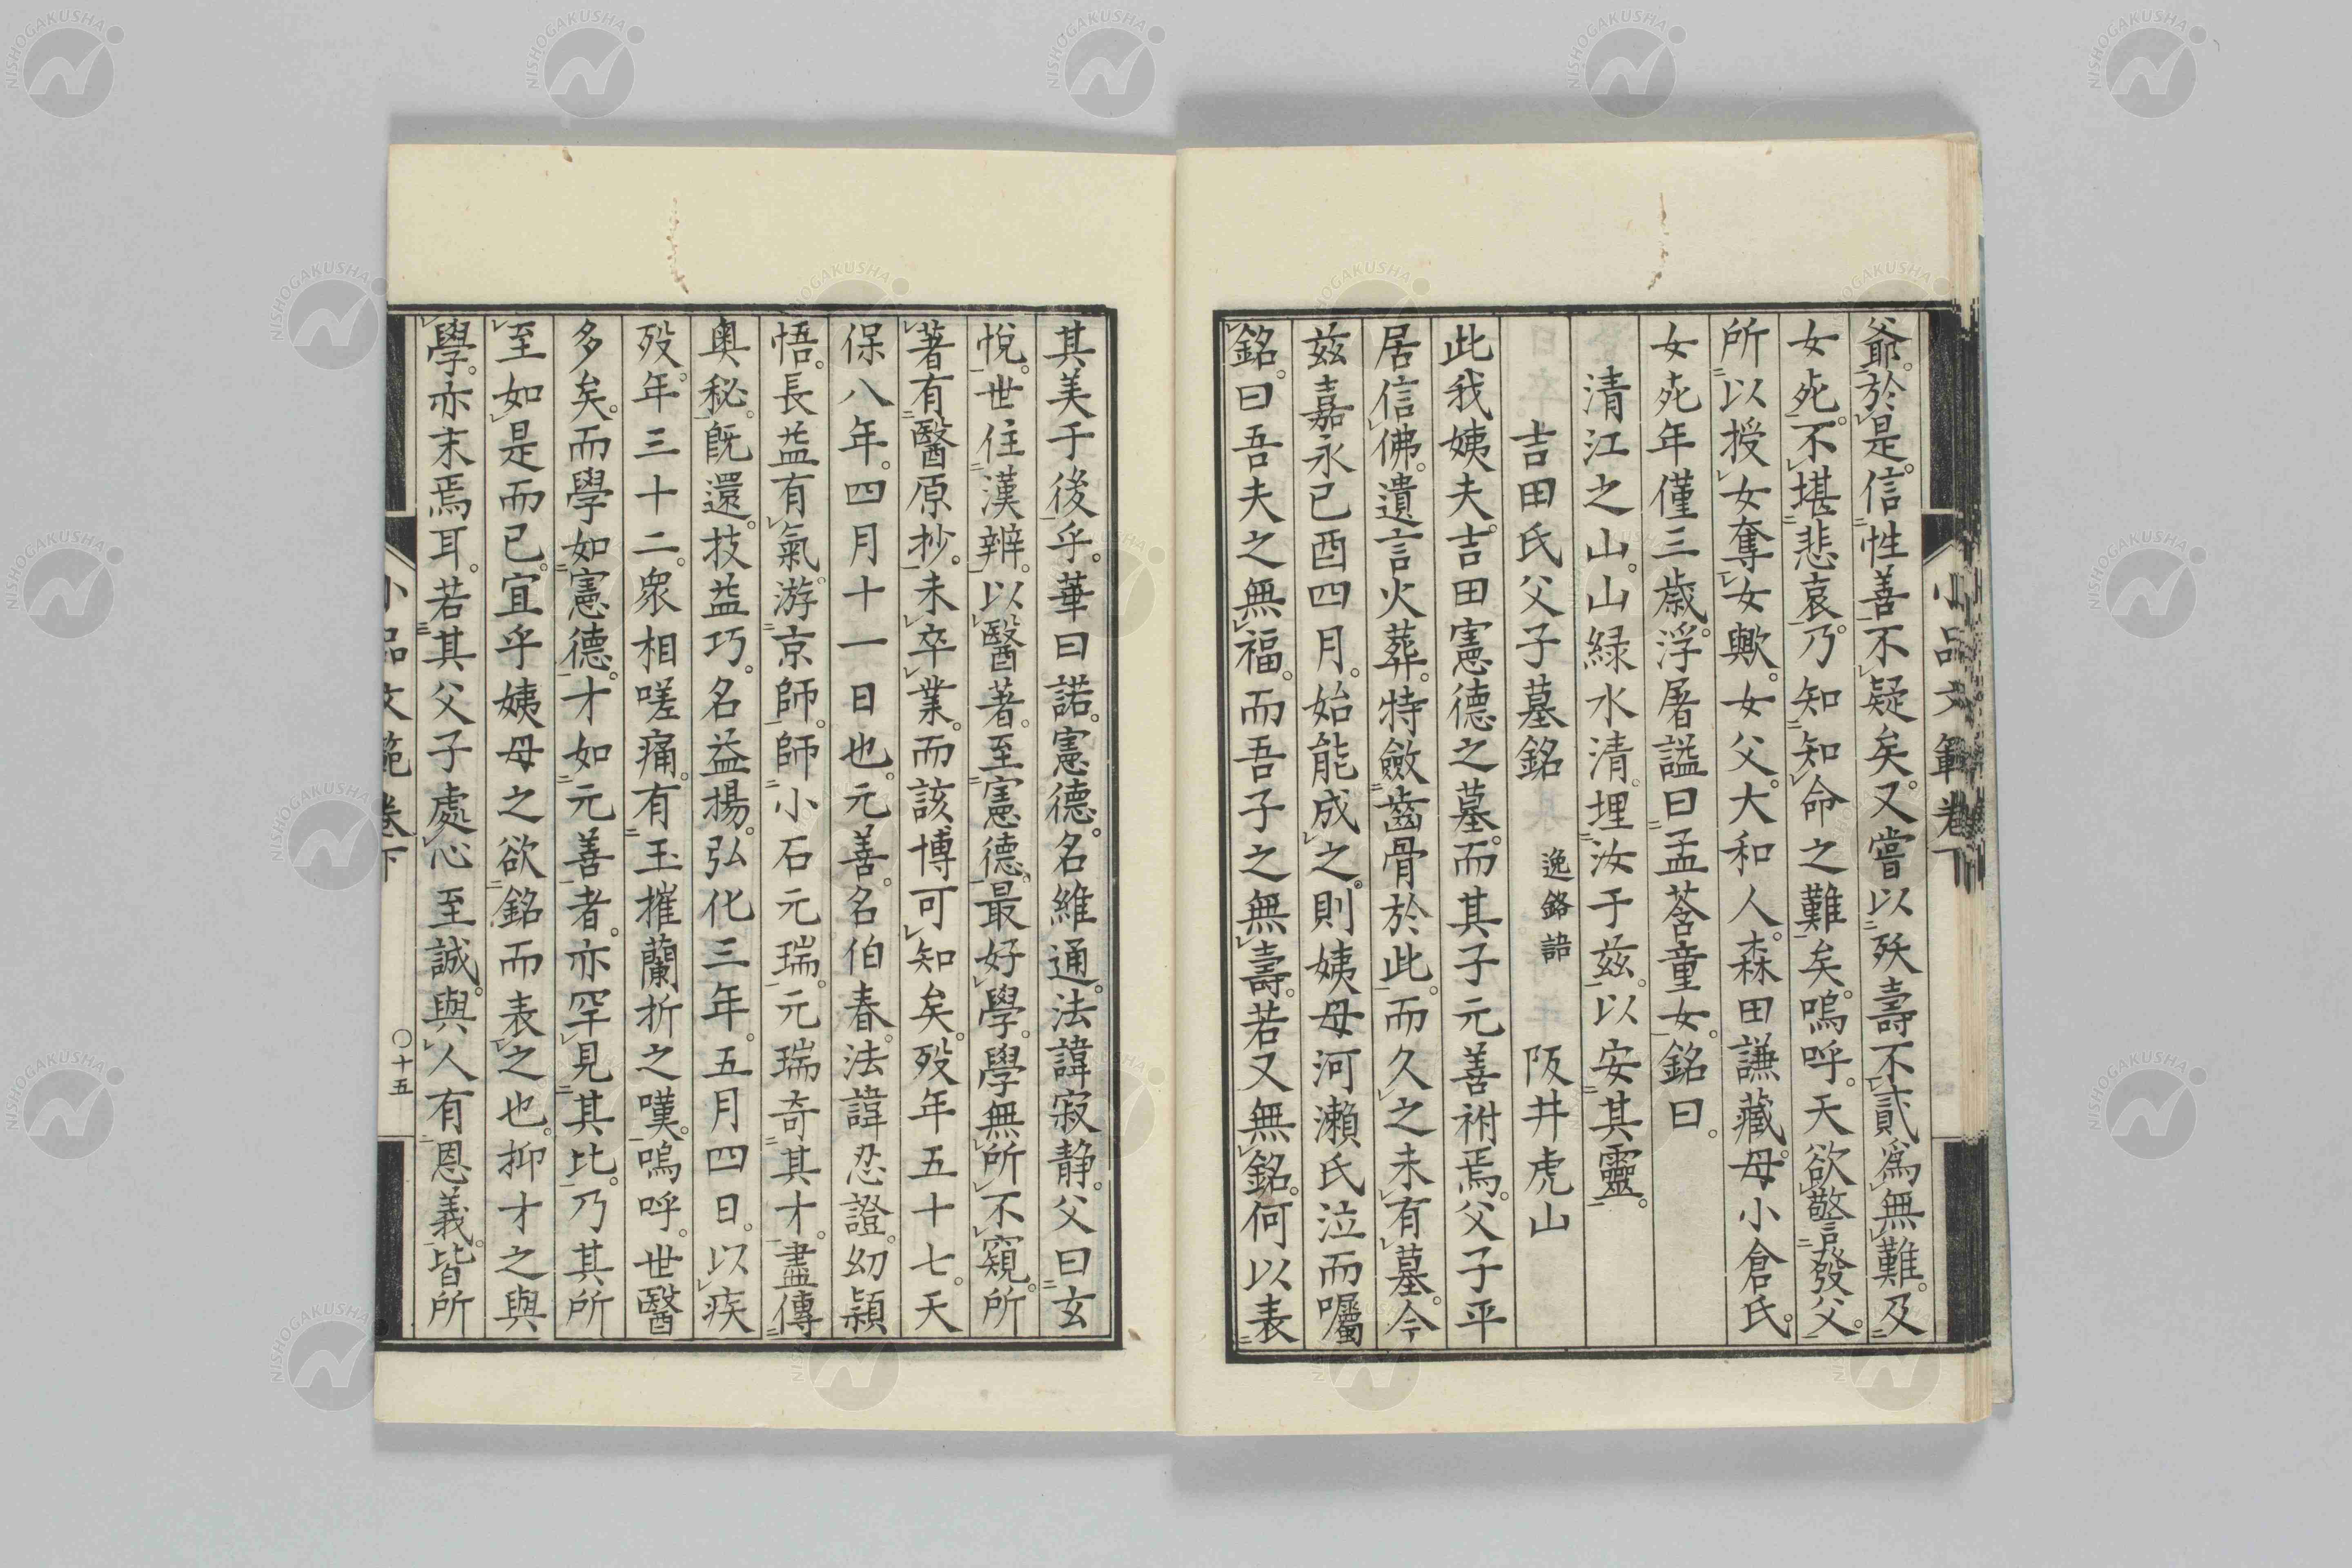 爺。於是。信性善不疑矣。又嘗以殀壽不貳爲無難。及
女死。不堪悲哀。乃知知命之難矣。嗚呼。天欲警發父。
所以授女奪女歟。女父。大和人。森田謙藏。母小倉氏。
女死年僅三歳。浮屠諡曰孟莟童女。銘曰。
清江之山。山緑水清。埋汝于兹。以安其靈。
吉田氏父子墓銘 逸銘語 阪井虎山
此我姨夫。吉田憲德之墓。而其子元善祔焉。父子平
居信佛。遺言火葬。特斂齒骨於此。而久之未有墓。今
兹嘉永己酉四月。始能成之。則姨母河瀬氏泣而囑
銘。曰吾夫之無福。而吾子之無壽。若又無銘。何以表
其美于後乎。華曰諾。憲德。名維通。法諱寂静。父曰玄
悅。世住漢辨。以醫著。至憲德。最好學。學無所不窺。所
著有醫原抄。未卒業。而該博可知矣。歿年五十七。天
保八年。四月十一日也。元善。名伯春。法諱忍證。幼穎
悟。長益有氣。游京師。師小石元瑞。元瑞奇其才。盡傳
奥秘。既還。技益巧。名益揚。弘化三年。五月四日。以疾
歿。年三十二。衆相嗟痛。有玉摧蘭折之嘆。嗚呼。世醫
多矣。而學如憲德。才如元善者。亦罕見其比。乃其所
至如是而已。宜乎姨母之欲銘而表之也。抑才之與
學。亦末焉耳。若其父子處心至誠。與人有恩義。皆所
小品文範卷下 〇十五